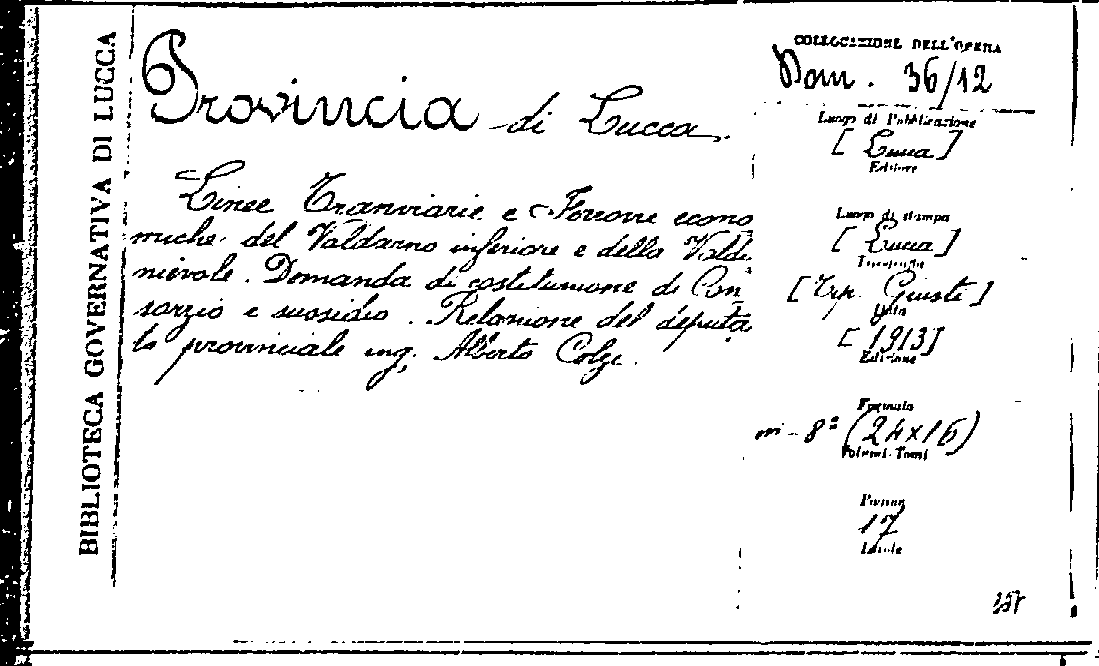 BIBLIOTECA GOVERNATIVA DI LUCCA
Provincia di Lucca.
Linee Tranviarie e Ferrovie econo
miche del Valdarno inferiore e della Valdi
nievole. Domanda di costituzione di Con
sorzio e sussidio. Relazione del deputa
to provinciale ing. Alberto Colzi.
COLLOCAZIONE DELL'OPERA
Dom. 36/12
Luogo di Pubblicazione
[Lucca]
Editore
Luogo di stampa
[Lucca]
Tipografia
[Tip. Giusti]
Data
[1913]
Edizione
Formato
in-8º (24x16)
Volumi-Tomi
Pagine
17
Tavole